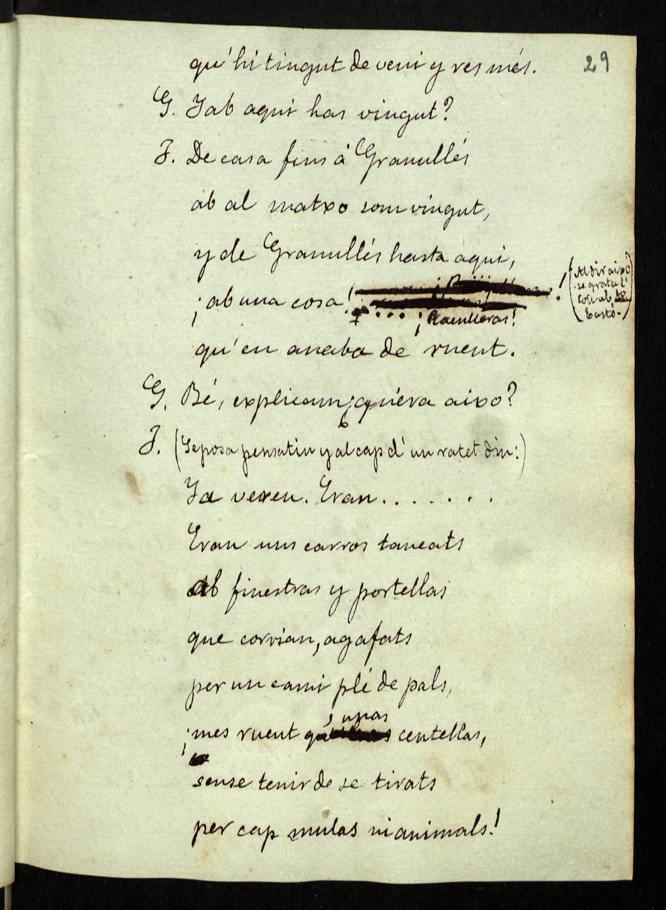 29
qu'hi tingut de veni y res més.
G. Y ab aqui has vingut?
F. De casa fins á Granullés
ab al matxo som vingut,
y de Granullés hasta aqui,
¡ab una cosa!
(Al dir aixó
se grata l'
coll ab
bastó.)
¡Raculleras!
qu'en anaba de ruent.
G. Bé, explicam ¿qu'era aixo?
F. (Se posa pensatiu y al cap d'un ratet diu:)
Ja veren. Eran.......
Eran uns carros tancats
Ab finestras y portellas
que corrian, agafats
per un cami plé de pals,
¡mes ruent qu'unas centellas,
sense tenir de se tirats
per cap mulas ni animals!